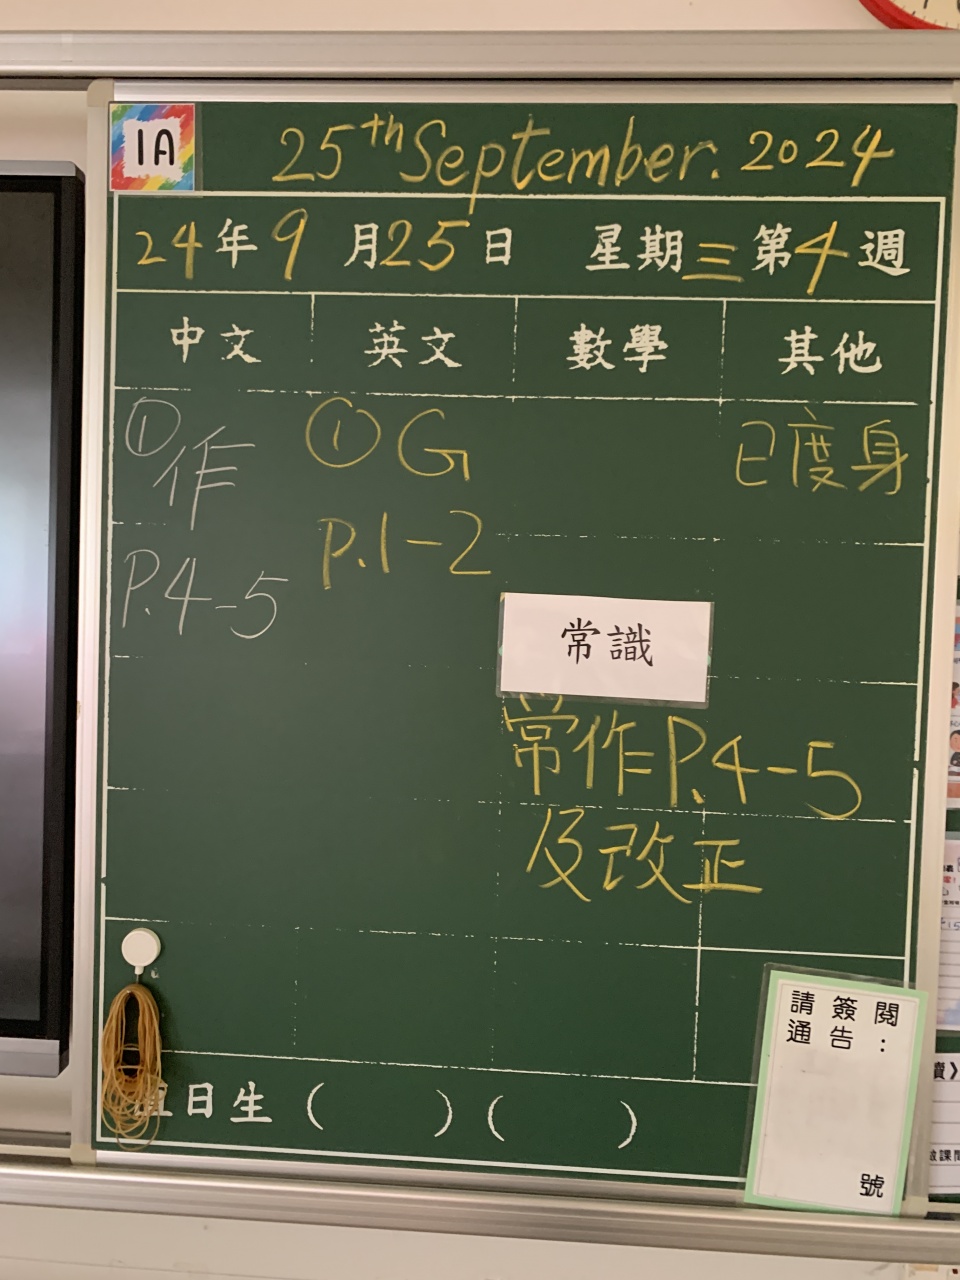 1A
25th September. 2024
24年9月25日 星期三第4週
中文 英文 數學 其他
①作 ①G 已度身
P.4-5 P.1-2
常識
常作P.4-5
及改正
日生 ( ) ( )
請簽閱
通告:
號